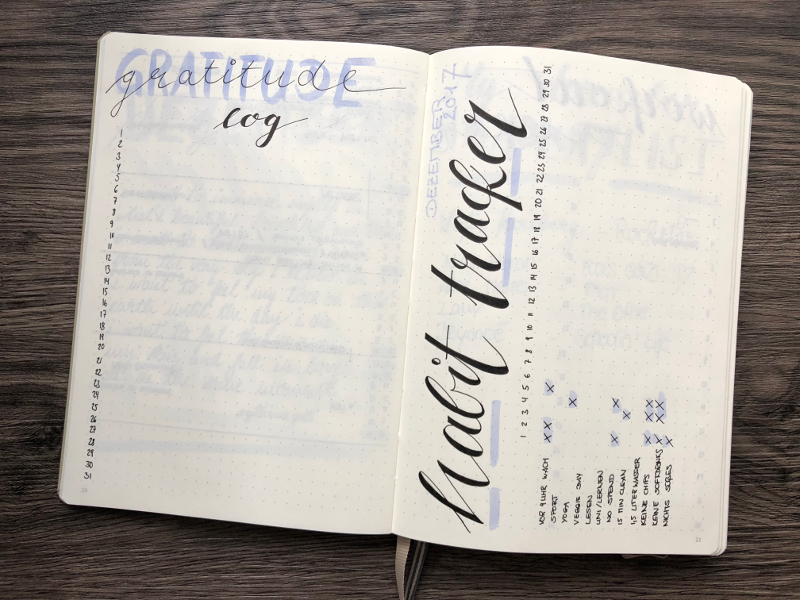 GRATITUDE
gratitude
log
1
2
3
4
5
6
7
8
9
10
11
12
13
14
15
16
17
18
19
20
21
22
23
24
25
26
27
28
29
30
31
DEZEMBER
2017
habit tracker
1 2 3 4 5 6 7 8 9 10 11 12 13 14 15 16 17 18 19 20 21 22 23 24 25 26 27 28 29 30 31
VOR 9 UHR WACH
SPORT
YOGA
VEGGIE DAY
LESEN
UNI/LERNEN
NO SPEND
15 MIN CLEAN
1,5 LITER WASSER
KEINE CHIPS
KEINE SOFTDRINKS
NICHTS SÜßES